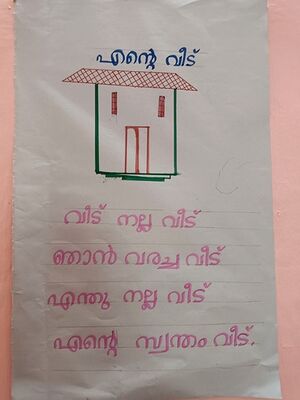 എന്റെ വീട്
വീട് നല്ല വീട്
ഞാൻ വരച്ച വീട്
എന്തു നല്ല വീട്
എന്റെ സ്വന്തം വീട്.